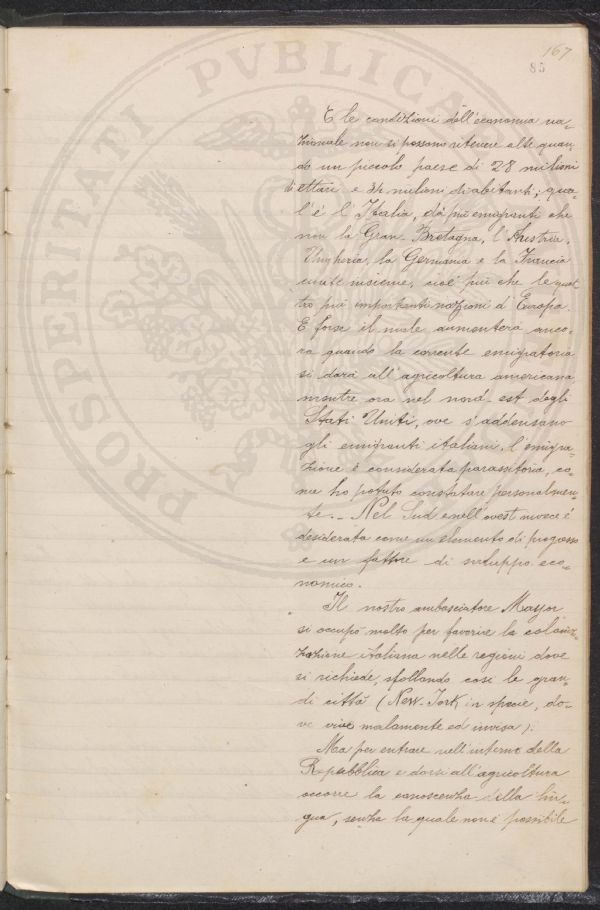 167
85
E le condizioni dell'economia na=
zionale non si possono ritenere alte quan=
do un piccolo paese di 28 milioni
di ettari e 34 milioni di abitanti, qua=
l'è l'Italia, dà più emigranti che
non la Gran-Bretagna, l'Austria,
Ungheria, la Germania e la Francia
unite insieme, cioè più che le quat
tro più importanti nazioni d'Europa.
E forse il male aumenterà anco=
ra quando la corrente emigratoria
si darà all'agricoltura americana
mentre ora nel nord-est degli
Stati Uniti, ove s'addensano
gli emigranti italiani, l'emigra=
zione è considerata parassitoria, co=
me ho potuto constatare personalmen=
te._ Nel Sud e nell'ovest invece è
desiderata come un elemento di progresso
e un fattore di sviluppo eco=
nomico.
Il nostro ambasciatore Mayor
si occupò molto per favorire la coloniz=
zazione italiana nelle regioni dove
si richiede, sfollando così le gran=
di città (New-York in specie, do=
ve vive malamente ed invisa).
Ma per entrare nell'interno della
Repubblica e darsi all'agricoltura
occorre la conoscenza della lin=
gua, senza la quale non è possibile
PROSPERITATI PVBLICAE